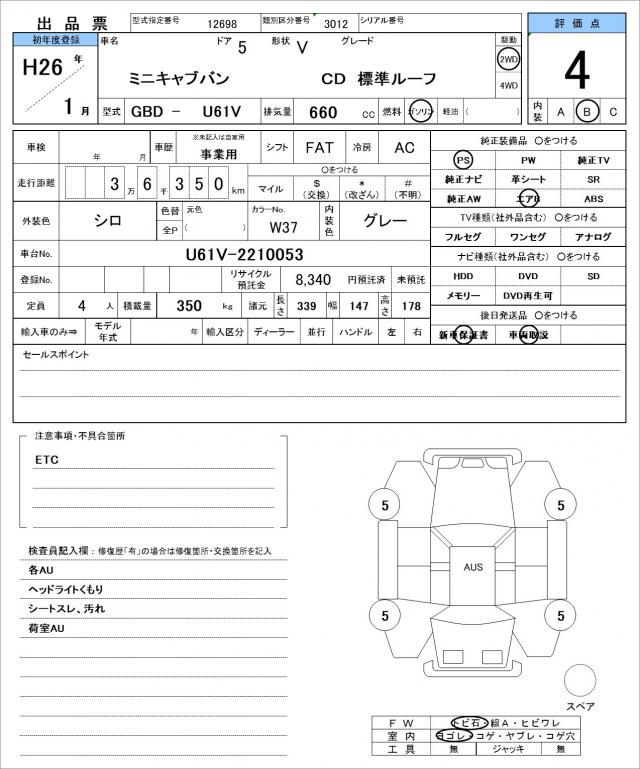 出品票 型式指定番号 12698 類別区分番号 3012 シリアル番号 評価点
初年度登録 車名 ドア 5 形状 V グレード 駆動
H26 年 ミニキャブバン CD 標準ルーフ 2WD 4
4WD
1 月 型式 GBD － U61V 排気量 660 cc 燃料 ガソリン 軽油 ( ) 内装 A B C
車検 年 月 車歴 ※未記入は自家用 事業用 シフト FAT 冷房 AC 純正装備品 〇をつける
PS PW 純正TV
走行距離 3 万 6 千 3 5 0 km 〇をつける マイル $ (交換) * (改ざん) # (不明) 純正ナビ 革シート SR
純正AW エアB ABS
外装色 シロ 色替 元色 カラーNo. W37 内装色 グレー TV種類(社外品含む) 〇をつける
全P ( ) フルセグ ワンセグ アナログ
車台No. U61V-2210053 ナビ種類(社外品含む) 〇をつける
登録No. リサイクル預託金 8,340 円預託済 未預託 HDD DVD SD
定員 4 人 積載量 350 kg 諸元 長さ 339 幅 147 高さ 178 メモリー DVD再生可
後日発送品 〇をつける
輸入車のみ⇒ モデル年式 年 輸入区分 ディーラー 並行 ハンドル 左 右 新車保証書 車両取説
セールスポイント
注意事項・不具合箇所
ETC
検査員記入欄：修復歴「有」の場合は修復箇所・交換箇所を記入
各AU
ヘッドライトくもり
シートスレ、汚れ
荷室AU
5 5
AUS
5 5
スペア
FW トビ石・線A・ヒビワレ
室内 ヨゴレ・コゲ・ヤブレ・コゲ穴
工具 無 ジャッキ 無